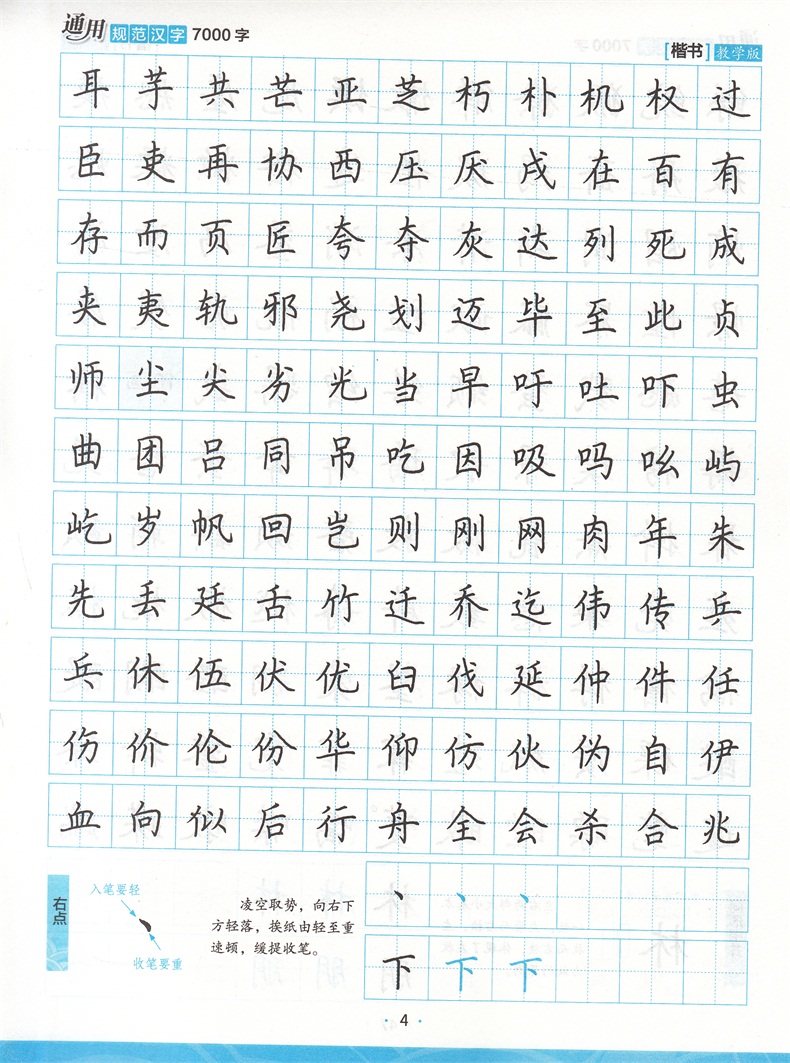 通用规范汉字7000字
[楷书]教学版
耳芋共芒亚芝朽朴机权过
臣吏再协西压厌戌在百有
存而页匠夸夺灰达列死成
夹夷轨邪尧划迈毕至此贞
师尘尖劣光当早吁吐吓虫
曲团吕同吊吃因吸吗吆屿
屹岁帆回岂则刚网肉年朱
先丢廷舌竹迁乔迄伟传乒
乓休伍伏优臼伐延仲件任
伤价伦份华仰仿伙伪自伊
血向似后行舟全会杀合兆
右点
入笔要轻
收笔要重
凌空取势，向右下
方轻落，挨纸由轻至重
速顿，缓提收笔。
丶丶丶
下下下
·4·